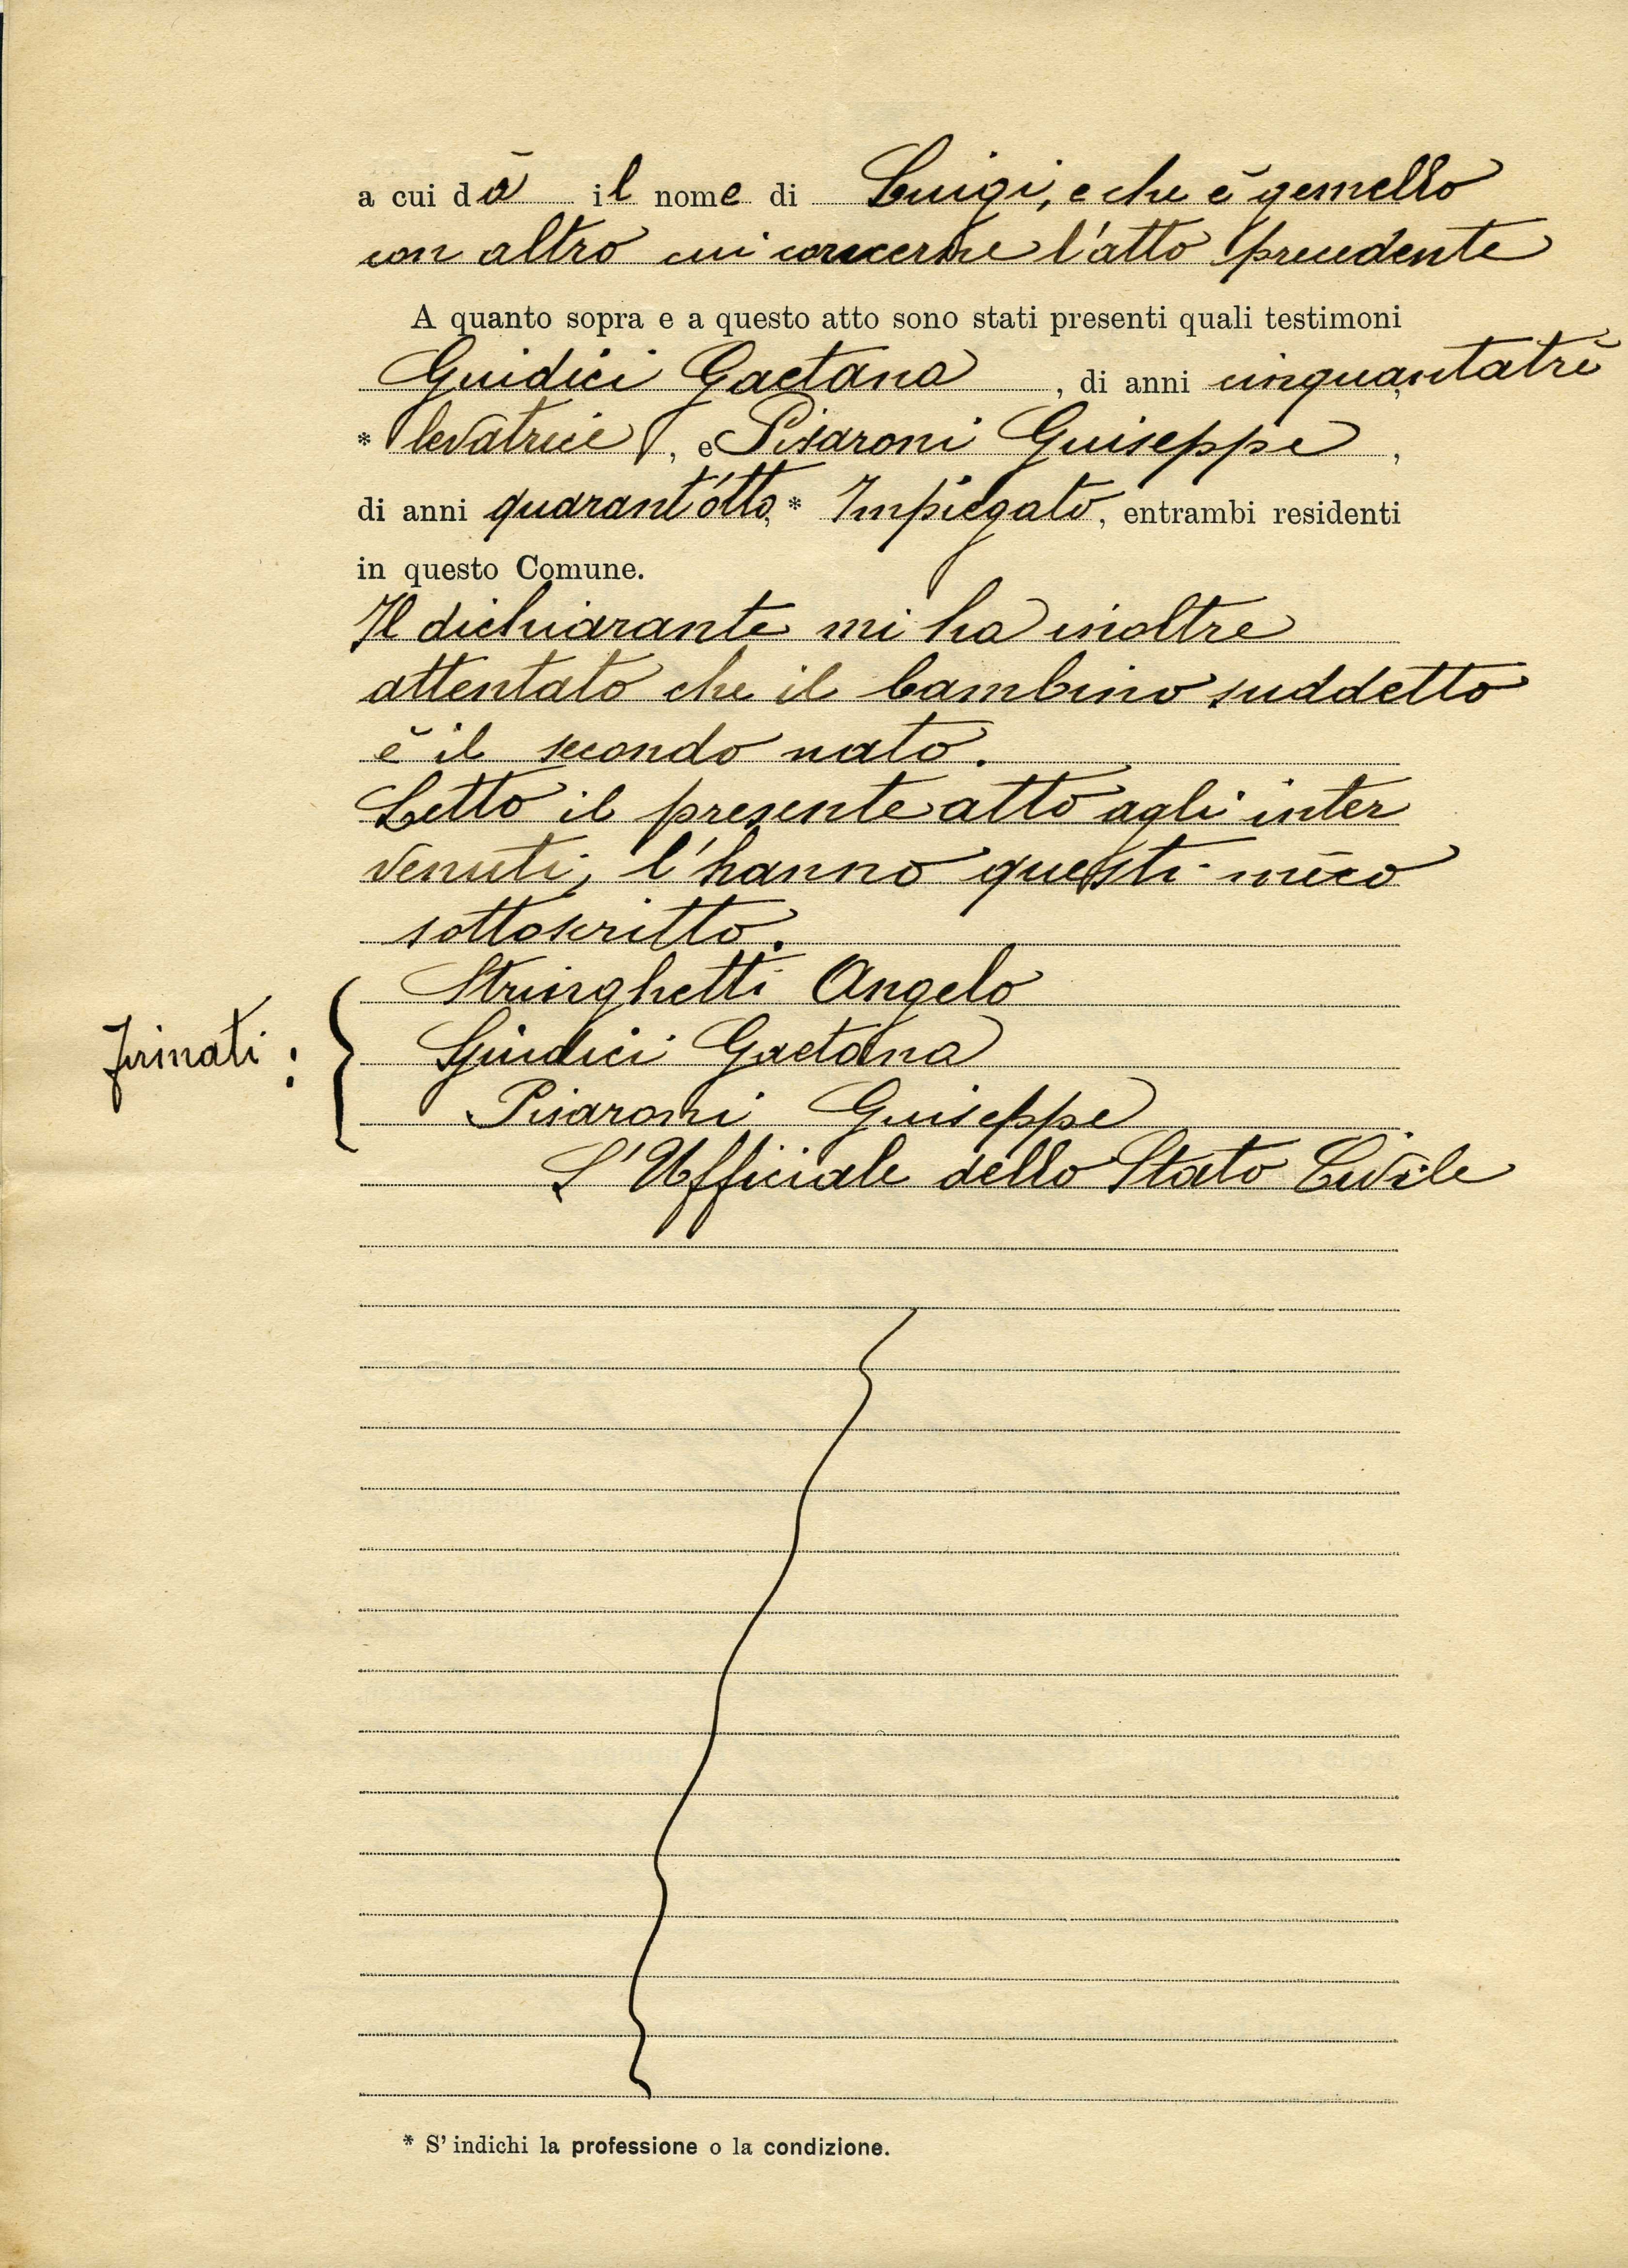 a cui dà il nome di Luigi, e che è gemello
con altro cui concerne l'atto precedente
A quanto sopra e a questo atto sono stati presenti quali testimoni
Guidici Gaetana, di anni cinquantatrè
* levatrice, e Pisaroni Guiseppe,
di anni quarant'otto, * Impiegato, entrambi residenti
in questo Comune.
Il dichiarante mi ha inoltre
attentato che il bambino suddetto
è il secondo nato.
Letto il presente atto agli inter
venuti, l'hanno questi meco
sottoscritto.
Stringhetti Angelo
Firmati: Giudici Gaetana
Pisaroni Guiseppe
L'Ufficiale dello Stato Civile
* S' indichi la professione o la condizione.